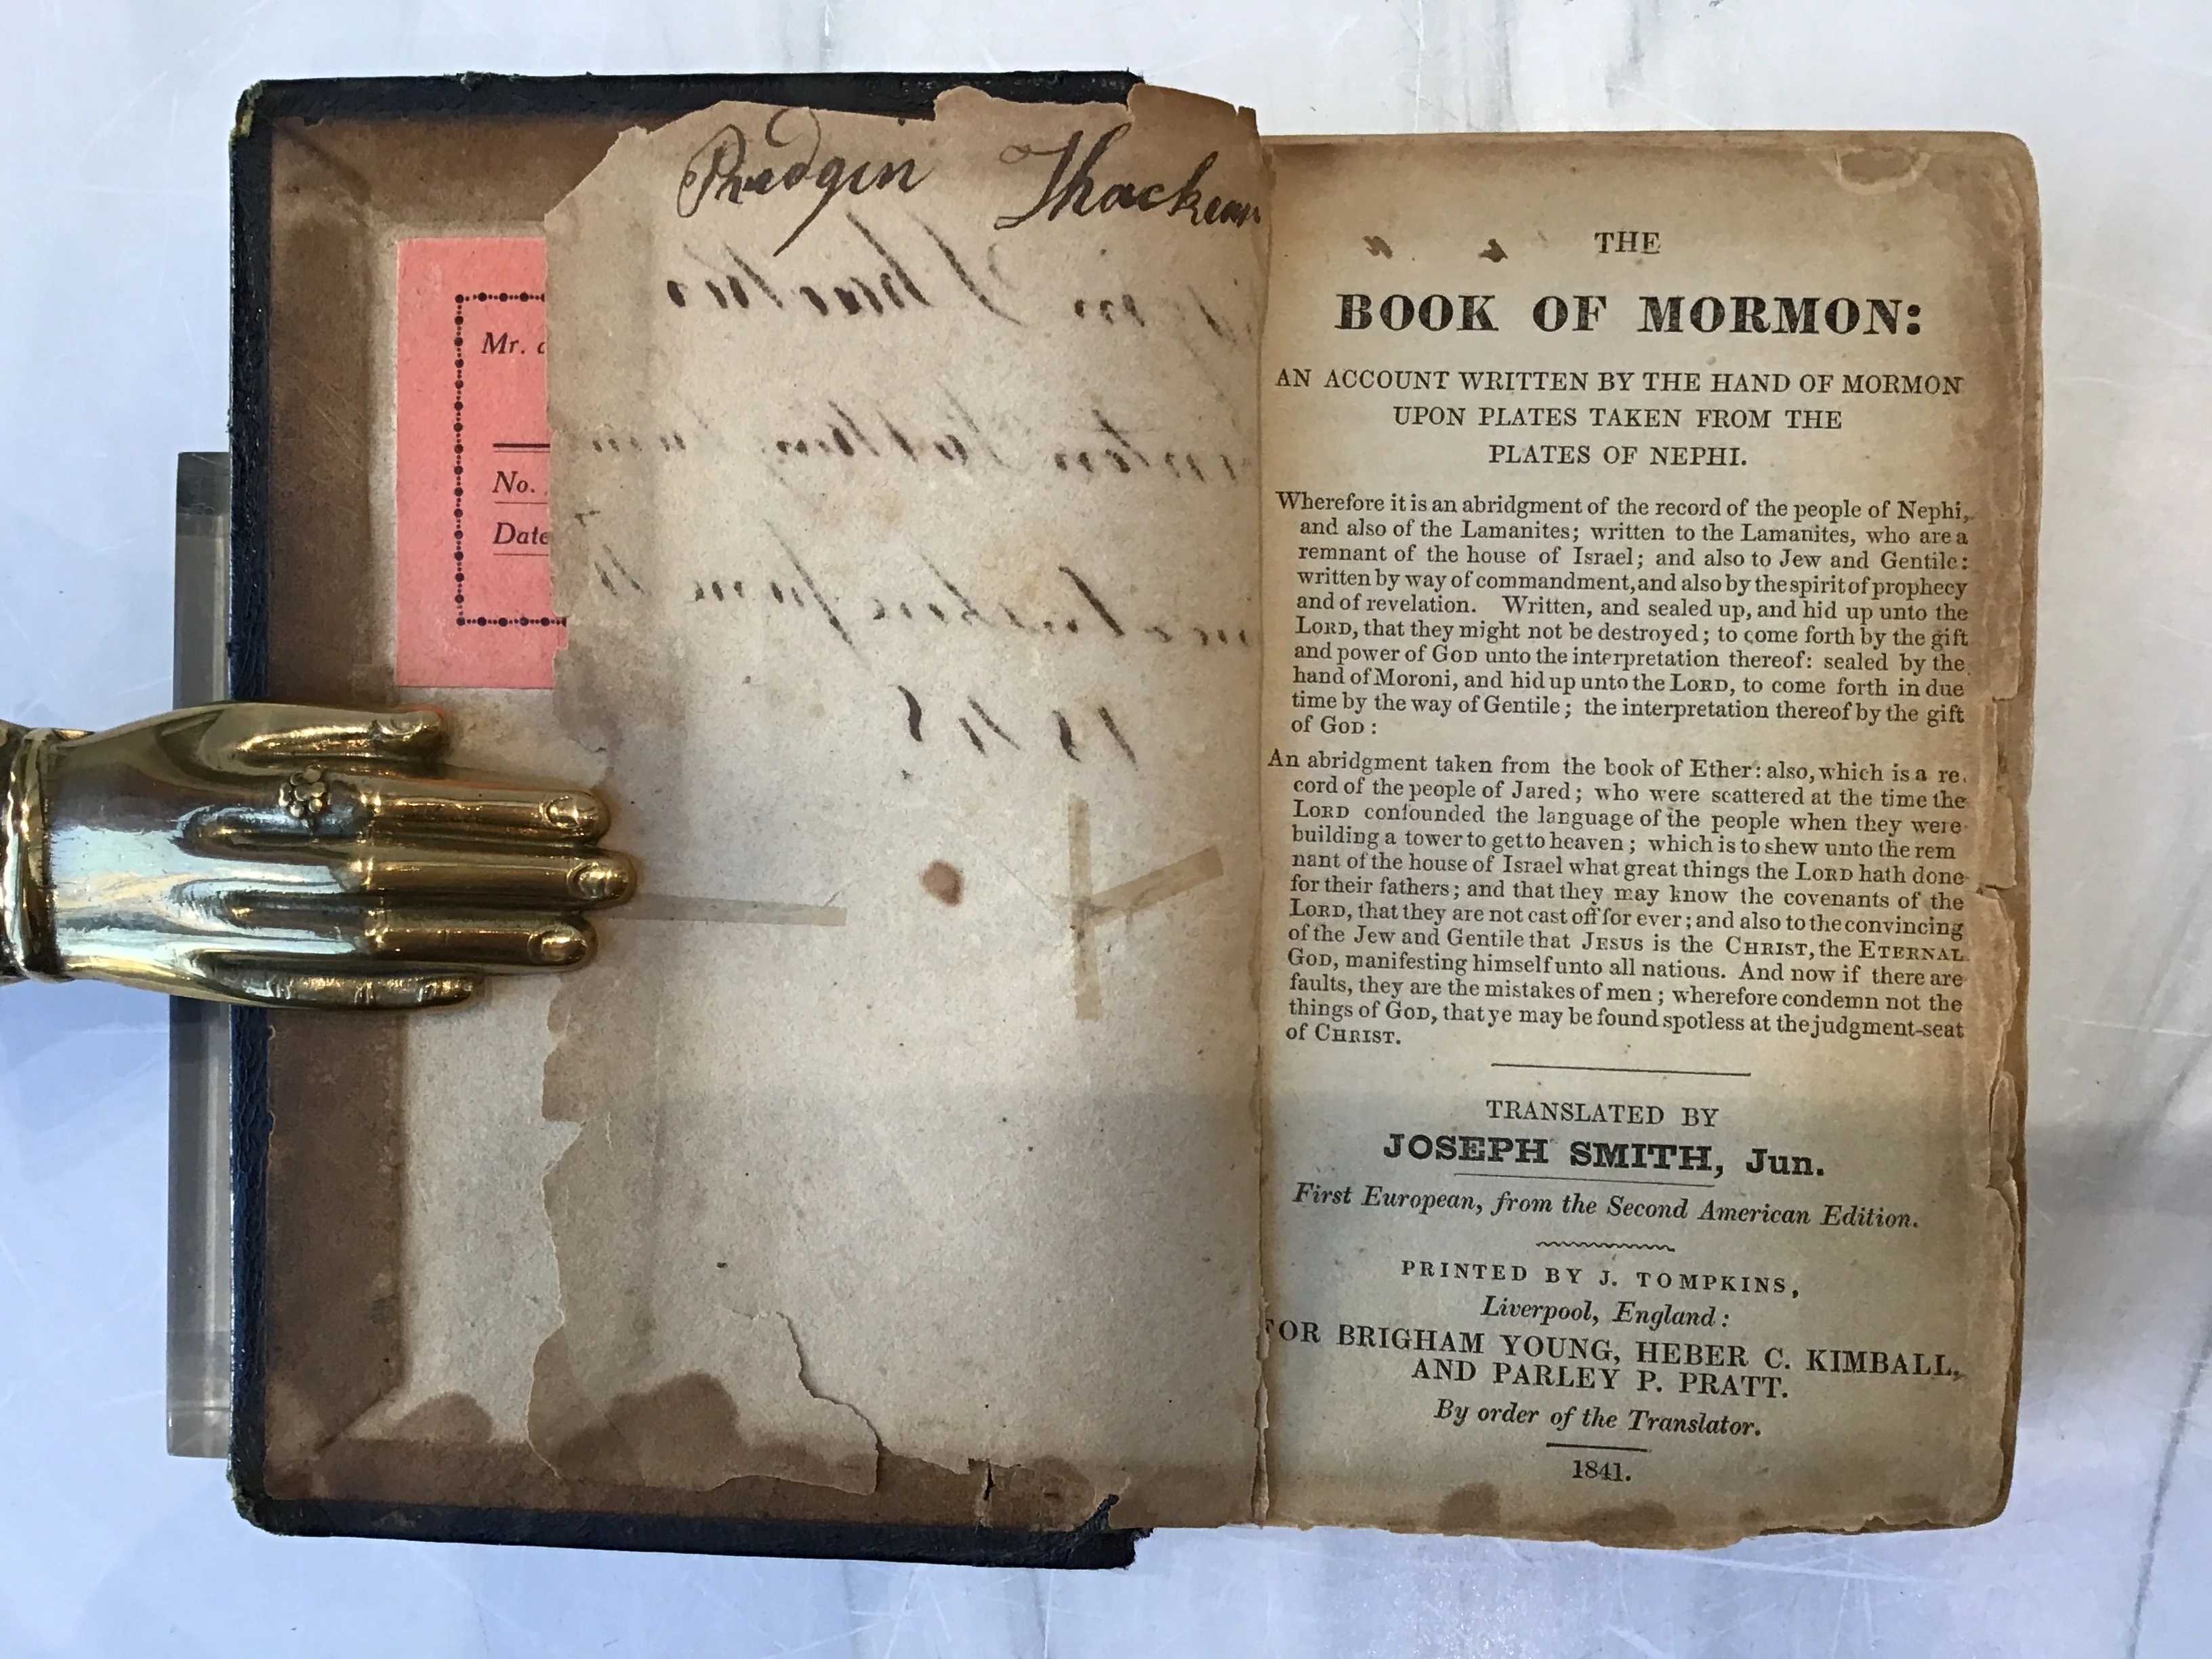 Mr.
No.
Date
THE
BOOK OF MORMON:
AN ACCOUNT WRITTEN BY THE HAND OF MORMON
UPON PLATES TAKEN FROM THE
PLATES OF NEPHI.
Wherefore it is an abridgment of the record of the people of Nephi,
and also of the Lamanites; written to the Lamanites, who are a
remnant of the house of Israel; and also to Jew and Gentile:
written by way of commandment, and also by the spirit of prophecy
and of revelation. Written, and sealed up, and hid up unto the
LORD, that they might not be destroyed; to come forth by the gift
and power of GOD unto the interpretation thereof: sealed by the
hand of Moroni, and hid up unto the LORD, to come forth in due
time by the way of Gentile; the interpretation thereof by the gift
of GOD:
An abridgment taken from the book of Ether: also, which is a re
cord of the people of Jared; who were scattered at the time the
LORD confounded the language of the people when they were
building a tower to get to heaven; which is to shew unto the rem
nant of the house of Israel what great things the LORD hath done
for their fathers; and that they may know the covenants of the
LORD, that they are not cast off for ever; and also to the convincing
of the Jew and Gentile that JESUS is the CHRIST, the ETERNAL
GOD, manifesting himself unto all nations. And now if there are
faults, they are the mistakes of men; wherefore condemn not the
things of GOD, that ye may be found spotless at the judgment-seat
of CHRIST.
TRANSLATED BY
JOSEPH SMITH, Jun.
First European, from the Second American Edition.
PRINTED BY J. TOMPKINS,
Liverpool, England:
FOR BRIGHAM YOUNG, HEBER C. KIMBALL,
AND PARLEY P. PRATT.
By order of the Translator.
1841.